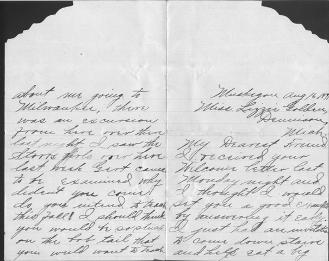 about me going to
Milwaukee, there
was an excursion
from here over there
last night I saw the
girls over here
last week
to be examined why
dident you come
do you intend to teach
this fall? I should think
you would be
on the bob tail that
you would want to teach
Muskegon Aug 16, 189
Miss Lizzie
Mich
My Dearest Friend
I received your
Welcome letter last
Monday night and
I thought I would
set you a good example
by answering it early
I just had an invitation
to come down stairs
and help eat a big